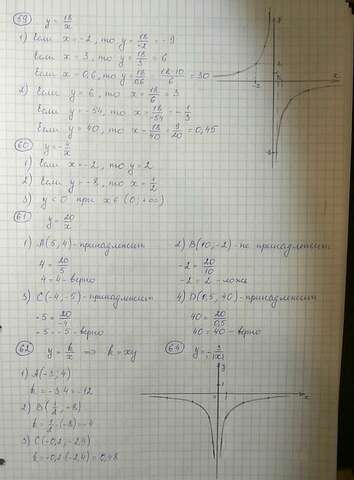 59) y = 18/x
1) Если x = -2, то y = 18/-2 = -9
Если x = 3, то y = 18/3 = 6
Если x = 0,6, то y = 18/0,6 = 18·10/6 = 30
2) Если y = 6, то x = 18/6 = 3
Если y = -54, то x = 18/-54 = -1/3
Если y = 40, то x = 18/40 = 9/20 = 0,45
60) y = -4/x
1) Если x = -2, то y = 2
2) Если y = -8, то x = 1/2
3) y < 0 при x ∈ (0; +∞)
61) y = 20/x
1) A(5, 4) - принадлежит
2) B(10, -2) - не принадлежит
4 = 20/5
-2 = 20/10
4 = 4 - верно
-2 = 2 - ложь
3) C(-4, -5) - принадлежит
4) D(0,5, 40) - принадлежит
-5 = 20/-4
40 = 20/0,5
-5 = -5 - верно
40 = 40 - верно
62) y = k/x ⇒ k = xy
64) y = -3/|x|
1) A(-3, 4)
k = -3·4 = -12
2) B(1/2, -8)
k = 1/2·(-8) = -4
3) C(-0,2, -2,4)
k = -0,2·(-2,4) = 0,48